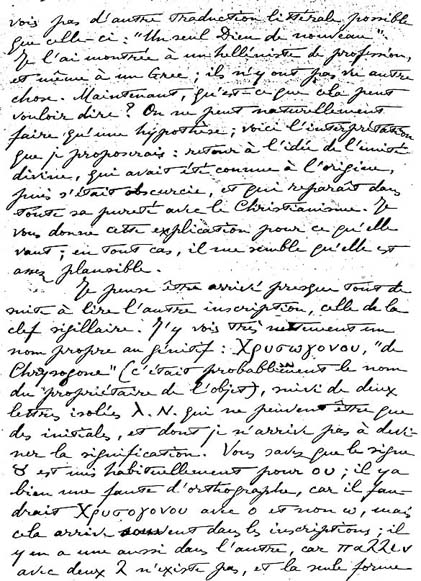 vois pas d'autre traduction littérale possible
que celle-ci : "Un seul Dieu de nouveau".
Je l'ai montrée à un helléniste de profession,
et même à un Grec ; ils n'y ont pas vu autre
chose. Maintenant, qu'est-ce que cela peut
vouloir dire ? On ne peut naturellement
faire qu'une hypothèse ; voici l'interprétation
que je proposerais : retour à l'idée de l'unité
divine, qui avait été connue à l'origine,
puis s'était obscurcie, et qui reparaît dans
toute sa pureté avec le Christianisme. Je
vous donne cette explication pour ce qu'elle
vaut ; en tout cas, il me semble qu'elle est
assez plausible.
Je pense être arrivé presque tout de
suite à lire l'autre inscription, celle de la
clef sigillaire. J'y vois très nettement un
nom propre au génitif : Χρυσωγονου, "de
Chrysogone" (c'était probablement le nom
du propriétaire de l'objet), suivi de deux
lettres isolées λ. N. qui ne peuvent être que
des initiales, et dont je n'arrive pas à devi-
ner la signification. Vous savez que le signe
ȣ est mis habituellement pour ου ; il y a
bien une faute d'orthographe, car il fau-
drait Χρυσογονου avec ο et non ω, mais
cela arrive souvent dans les inscriptions ; il
y en a une aussi dans l'autre, car παλλεν
avec deux λ n'existe pas, et la seule forme